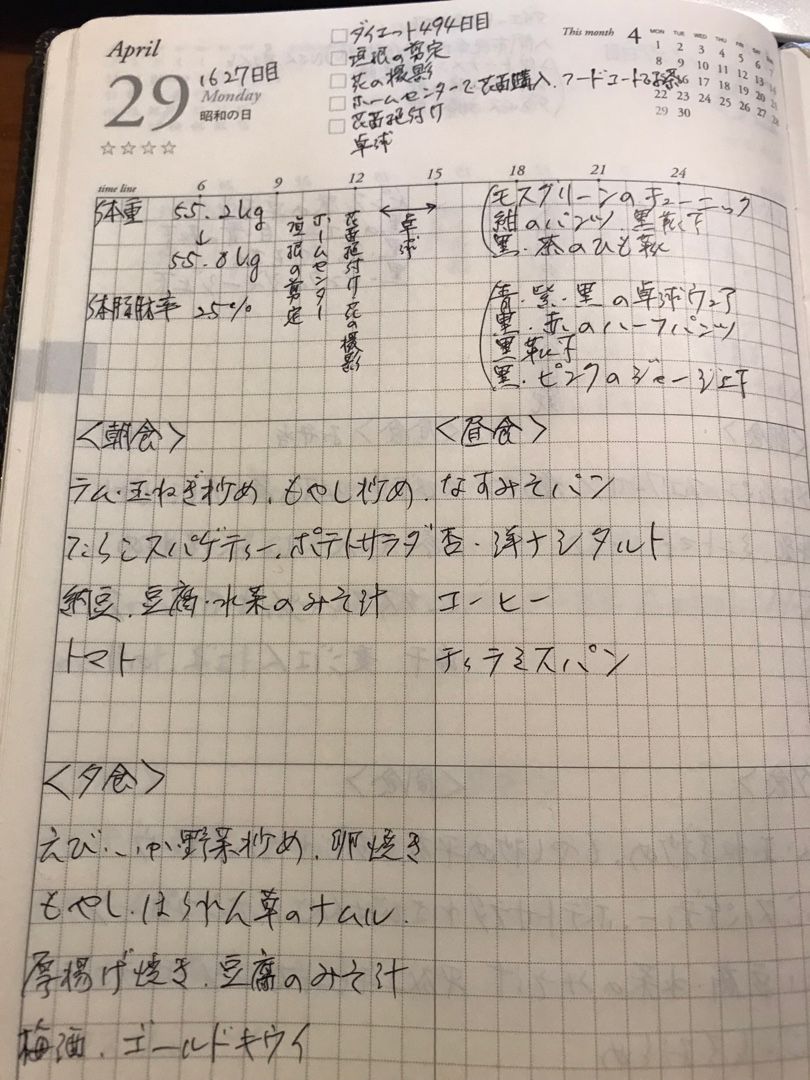 April
29
1627日目
Monday
昭和の日
☆☆☆☆
□ダイエット494日目
□垣根の剪定
□花の撮影
□ホームセンターで花苗購入、フードコートでお茶
□花苗植付け
卓球
This month 4
MON TUE WED THU FRI SAT SUN
1 2 3 4 5 6 7
8 9 10 11 12 13 14
15 16 17 18 19 20 21
22 23 24 25 26 27 28
29 30
time line 6 9 12 15 18 21 24
体重 55.2kg
↓
55.8kg
体脂肪率 25%
垣根の剪定
ホームセンター
花苗植付け・花の撮影
卓球
モスグリーンのチューニック
紺のパンツ、黒靴下
黒・茶のひも靴
青・紫・黒の卓球ウェア
黒・赤のハーフパンツ
黒靴下
黒・ピンクのジャージ上下
<朝食>
ラム・玉ねぎ炒め、もやし炒め、
たらこスパゲティー、ポテトサラダ
納豆、豆腐・水菜のみそ汁
トマト
<昼食>
なすみそパン
杏・洋ナシタルト
コーヒー
ティラミスパン
<夕食>
えび・いか・野菜炒め、卵焼き
もやし・ほうれん草のナムル、
厚揚げ焼き、豆腐のみそ汁
梅酒、ゴールドキウイ